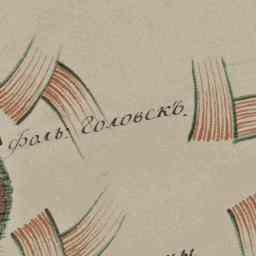 фоль: Головскъ.